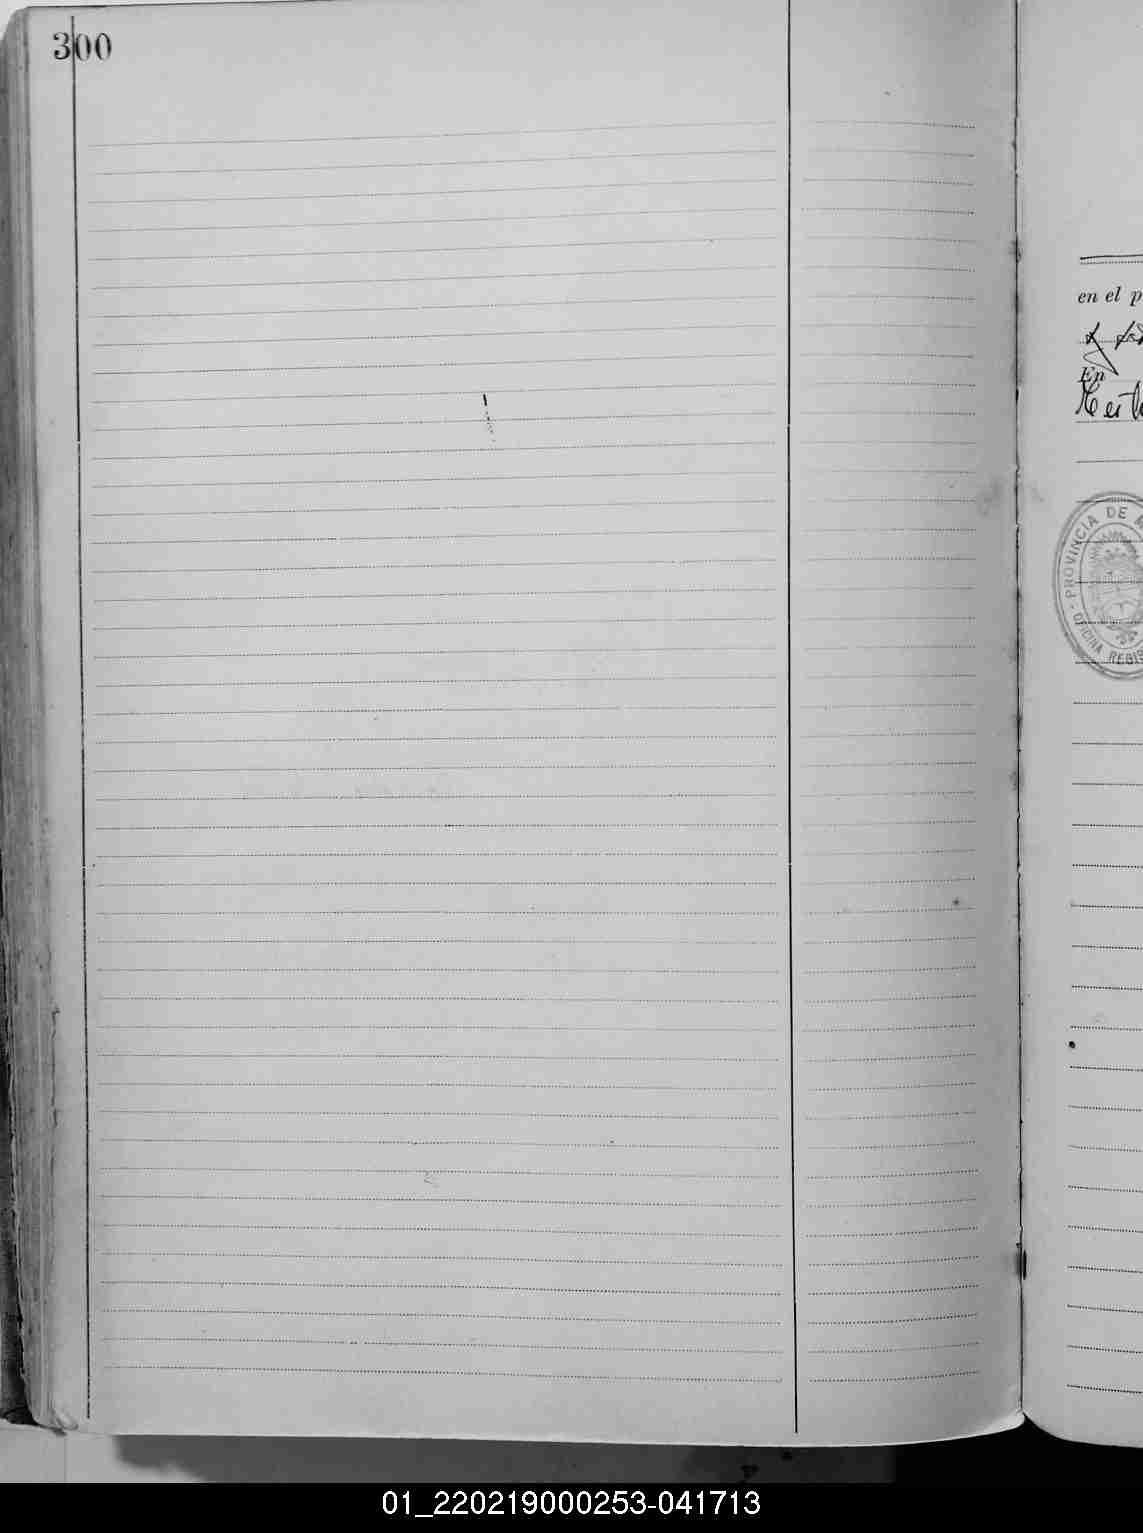 300
en el p
En
PROVINCIA DE
OFICINA REGIS
01_220219000253-041713